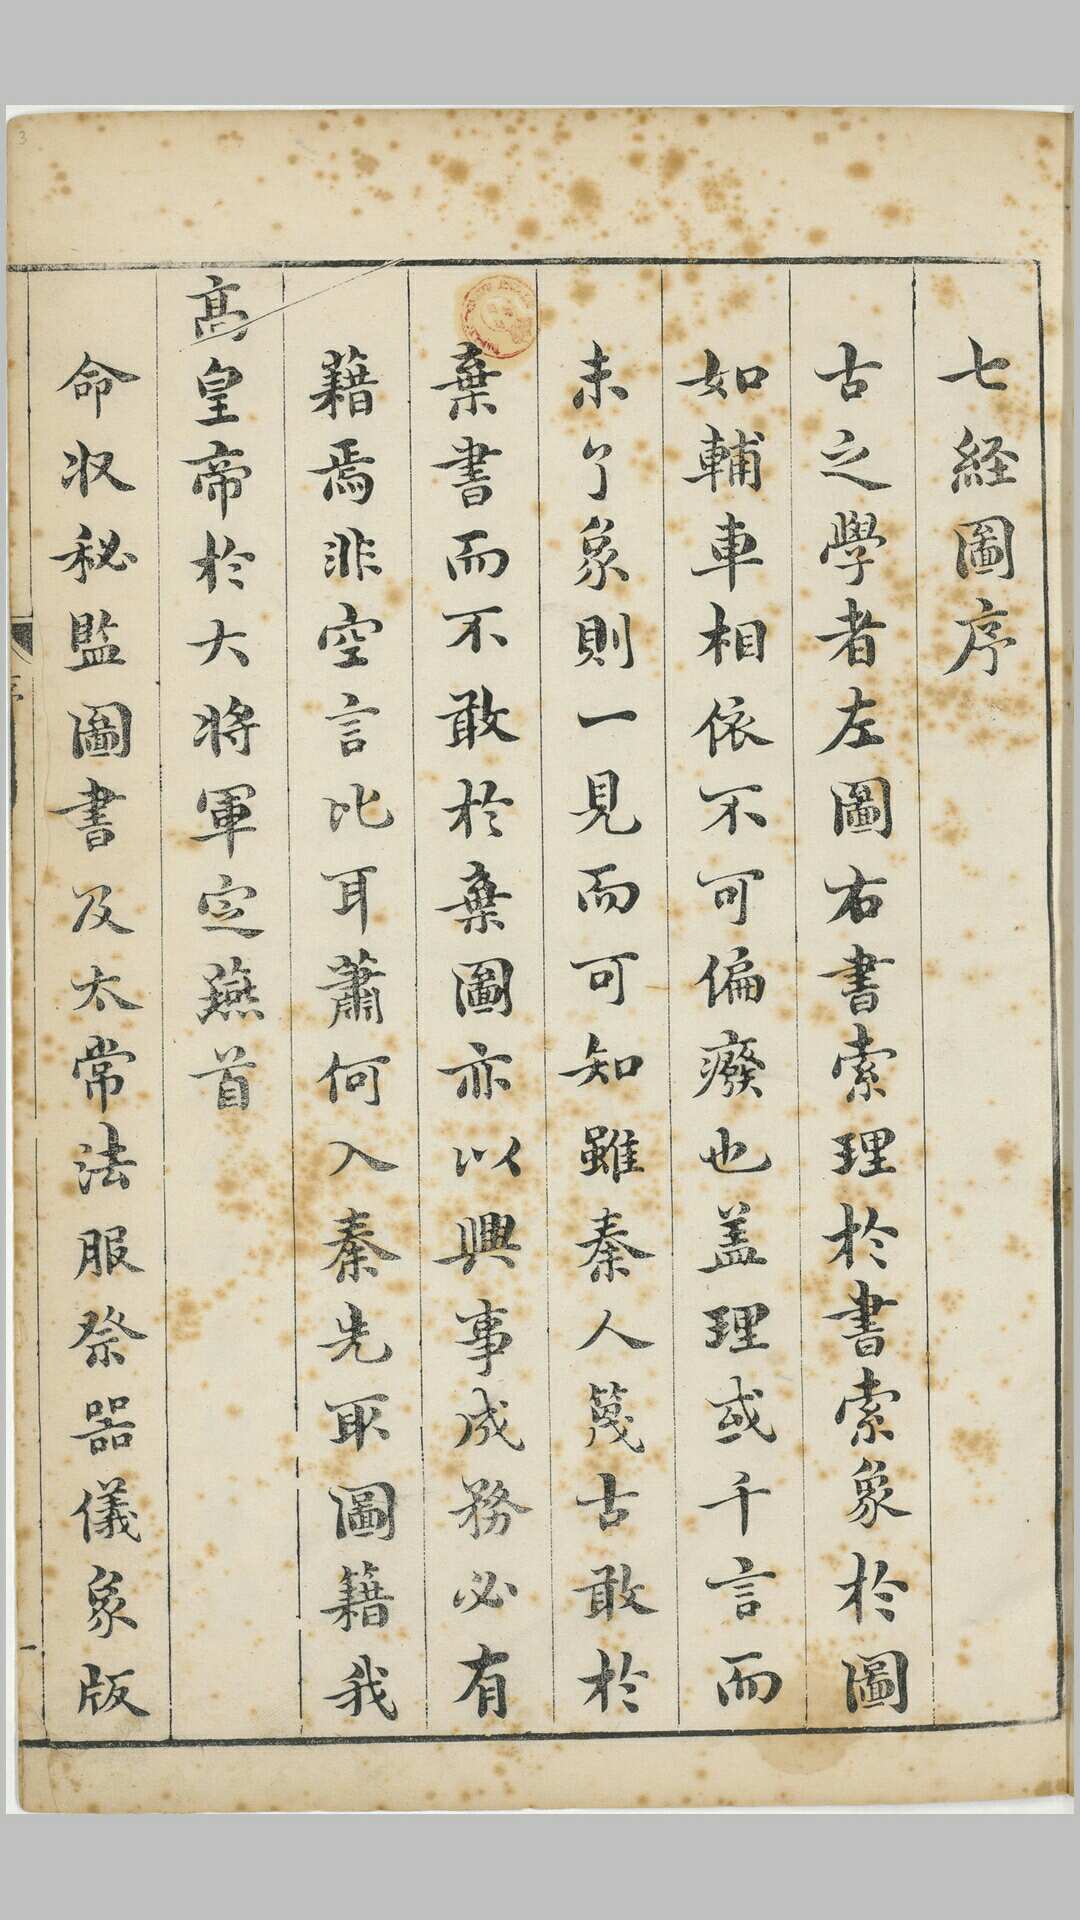 七経圖序
古之學者左圖右書索理於書索象於圖
如輔車相依不可偏癈也盖理或千言而
未了象則一見而可知雖秦人蔑古敢於
棄書而不敢於棄圖亦以興事成務必有
藉焉非空言比耳蕭何入秦先取圖籍我
髙皇帝於大將軍定燕首
命収秘監圖書及太常法服祭器儀象版
3